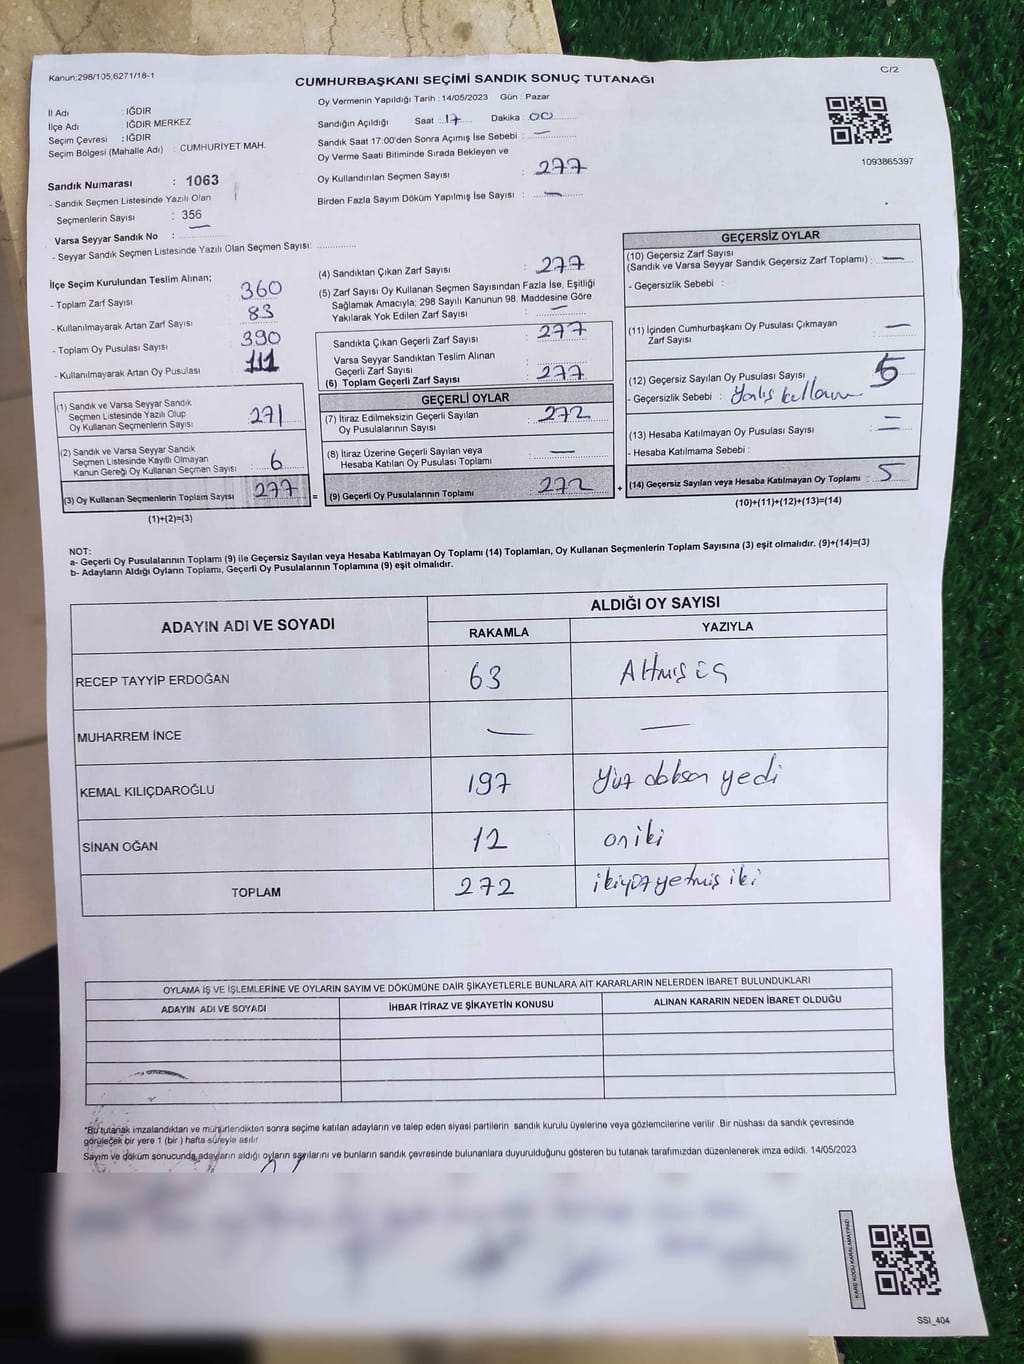 Kanun;298/105;6271/18-1
C/2
CUMHURBAŞKANI SEÇİMİ SANDIK SONUÇ TUTANAĞI
Oy Vermenin Yapıldığı Tarih :14/05/2023 Gün : Pazar
İl Adı : IĞDIR
İlçe Adı : IĞDIR MERKEZ
Seçim Çevresi : IĞDIR
Seçim Bölgesi (Mahalle Adı) : CUMHURİYET MAH.
Sandığın Açıldığı Saat : 17 Dakika : 00
Sandık Saat 17:00'den Sonra Açımış İse Sebebi : —
Oy Verme Saati Bitiminde Sırada Bekleyen ve
Oy Kullandırılan Seçmen Sayısı : 277
Birden Fazla Sayım Döküm Yapılmış İse Sayısı : —
1093865397
Sandık Numarası : 1063
- Sandık Seçmen Listesinde Yazılı Olan
Seçmenlerin Sayısı : 356
Varsa Seyyar Sandık No : —
- Seyyar Sandık Seçmen Listesinde Yazılı Olan Seçmen Sayısı:
İlçe Seçim Kurulundan Teslim Alınan;
- Toplam Zarf Sayısı 360
- Kullanılmayarak Artan Zarf Sayısı 83
- Toplam Oy Pusulası Sayısı 390
- Kullanılmayarak Artan Oy Pusulası 111
(1) Sandık ve Varsa Seyyar Sandık
Seçmen Listesinde Yazılı Olup
Oy Kullanan Seçmenlerin Sayısı : 271
(2) Sandık ve Varsa Seyyar Sandık
Seçmen Listesinde Kayıtlı Olmayan
Kanun Gereği Oy Kullanan Seçmen Sayısı : 6
(3) Oy Kullanan Seçmenlerin Toplam Sayısı : 277
(1)+(2)=(3)
(4) Sandıktan Çıkan Zarf Sayısı : 277
(5) Zarf Sayısı Oy Kullanan Seçmen Sayısından Fazla İse, Eşitliği
Sağlamak Amacıyla; 298 Sayılı Kanunun 98. Maddesine Göre
Yakılarak Yok Edilen Zarf Sayısı : —
Sandıkta Çıkan Geçerli Zarf Sayısı : 277
Varsa Seyyar Sandıktan Teslim Alınan
Geçerli Zarf Sayısı :
(6) Toplam Geçerli Zarf Sayısı : 277
GEÇERLİ OYLAR
(7) İtiraz Edilmeksizin Geçerli Sayılan
Oy Pusulalarının Sayısı : 272
(8) İtiraz Üzerine Geçerli Sayılan veya
Hesaba Katılan Oy Pusulası Toplamı : —
= (9) Geçerli Oy Pusulalarının Toplamı : 272
GEÇERSİZ OYLAR
(10) Geçersiz Zarf Sayısı
(Sandık ve Varsa Seyyar Sandık Geçersiz Zarf Toplamı) : —
- Geçersizlik Sebebi :
(11) İçinden Cumhurbaşkanı Oy Pusulası Çıkmayan
Zarf Sayısı : —
(12) Geçersiz Sayılan Oy Pusulası Sayısı : 5
- Geçersizlik Sebebi : Yanlış kullanım
(13) Hesaba Katılmayan Oy Pusulası Sayısı : —
- Hesaba Katılmama Sebebi : —
+ (14) Geçersiz Sayılan veya Hesaba Katılmayan Oy Toplamı : 5
(10)+(11)+(12)+(13)=(14)
NOT:
a- Geçerli Oy Pusulalarının Toplamı (9) ile Geçersiz Sayılan veya Hesaba Katılmayan Oy Toplamı (14) Toplamları, Oy Kullanan Seçmenlerin Toplam Sayısına (3) eşit olmalıdır. (9)+(14)=(3)
b- Adayların Aldığı Oyların Toplamı, Geçerli Oy Pusulalarının Toplamına (9) eşit olmalıdır.
ADAYIN ADI VE SOYADI
ALDIĞI OY SAYISI
RAKAMLA YAZIYLA
RECEP TAYYİP ERDOĞAN 63 Altmış üç
MUHARREM İNCE — —
KEMAL KILIÇDAROĞLU 197 Yüz doksan yedi
SİNAN OĞAN 12 on iki
TOPLAM 272 ikiyüz yetmiş iki
OYLAMA İŞ VE İŞLEMLERİNE VE OYLARIN SAYIM VE DÖKÜMÜNE DAİR ŞİKAYETLERLE BUNLARA AİT KARARLARIN NELERDEN İBARET BULUNDUKLARI
ADAYIN ADI VE SOYADI İHBAR İTİRAZ VE ŞİKAYETİN KONUSU ALINAN KARARIN NEDEN İBARET OLDUĞU
*Bu tutanak imzalandıktan ve mühürlendikten sonra seçime katılan adayların ve talep eden siyasi partilerin sandık kurulu üyelerine veya gözlemcilerine verilir .Bir nüshası da sandık çevresinde
görülecek bir yere 1 (bir ) hafta süreyle asılır
Sayım ve döküm sonucunda adayların aldığı oyların sayılarını ve bunların sandık çevresinde bulunanlara duyurulduğunu gösteren bu tutanak tarafımızdan düzenlenerek imza edildi. 14/05/2023
KARE KODU KARALAMAYINIZ!
SSI_404